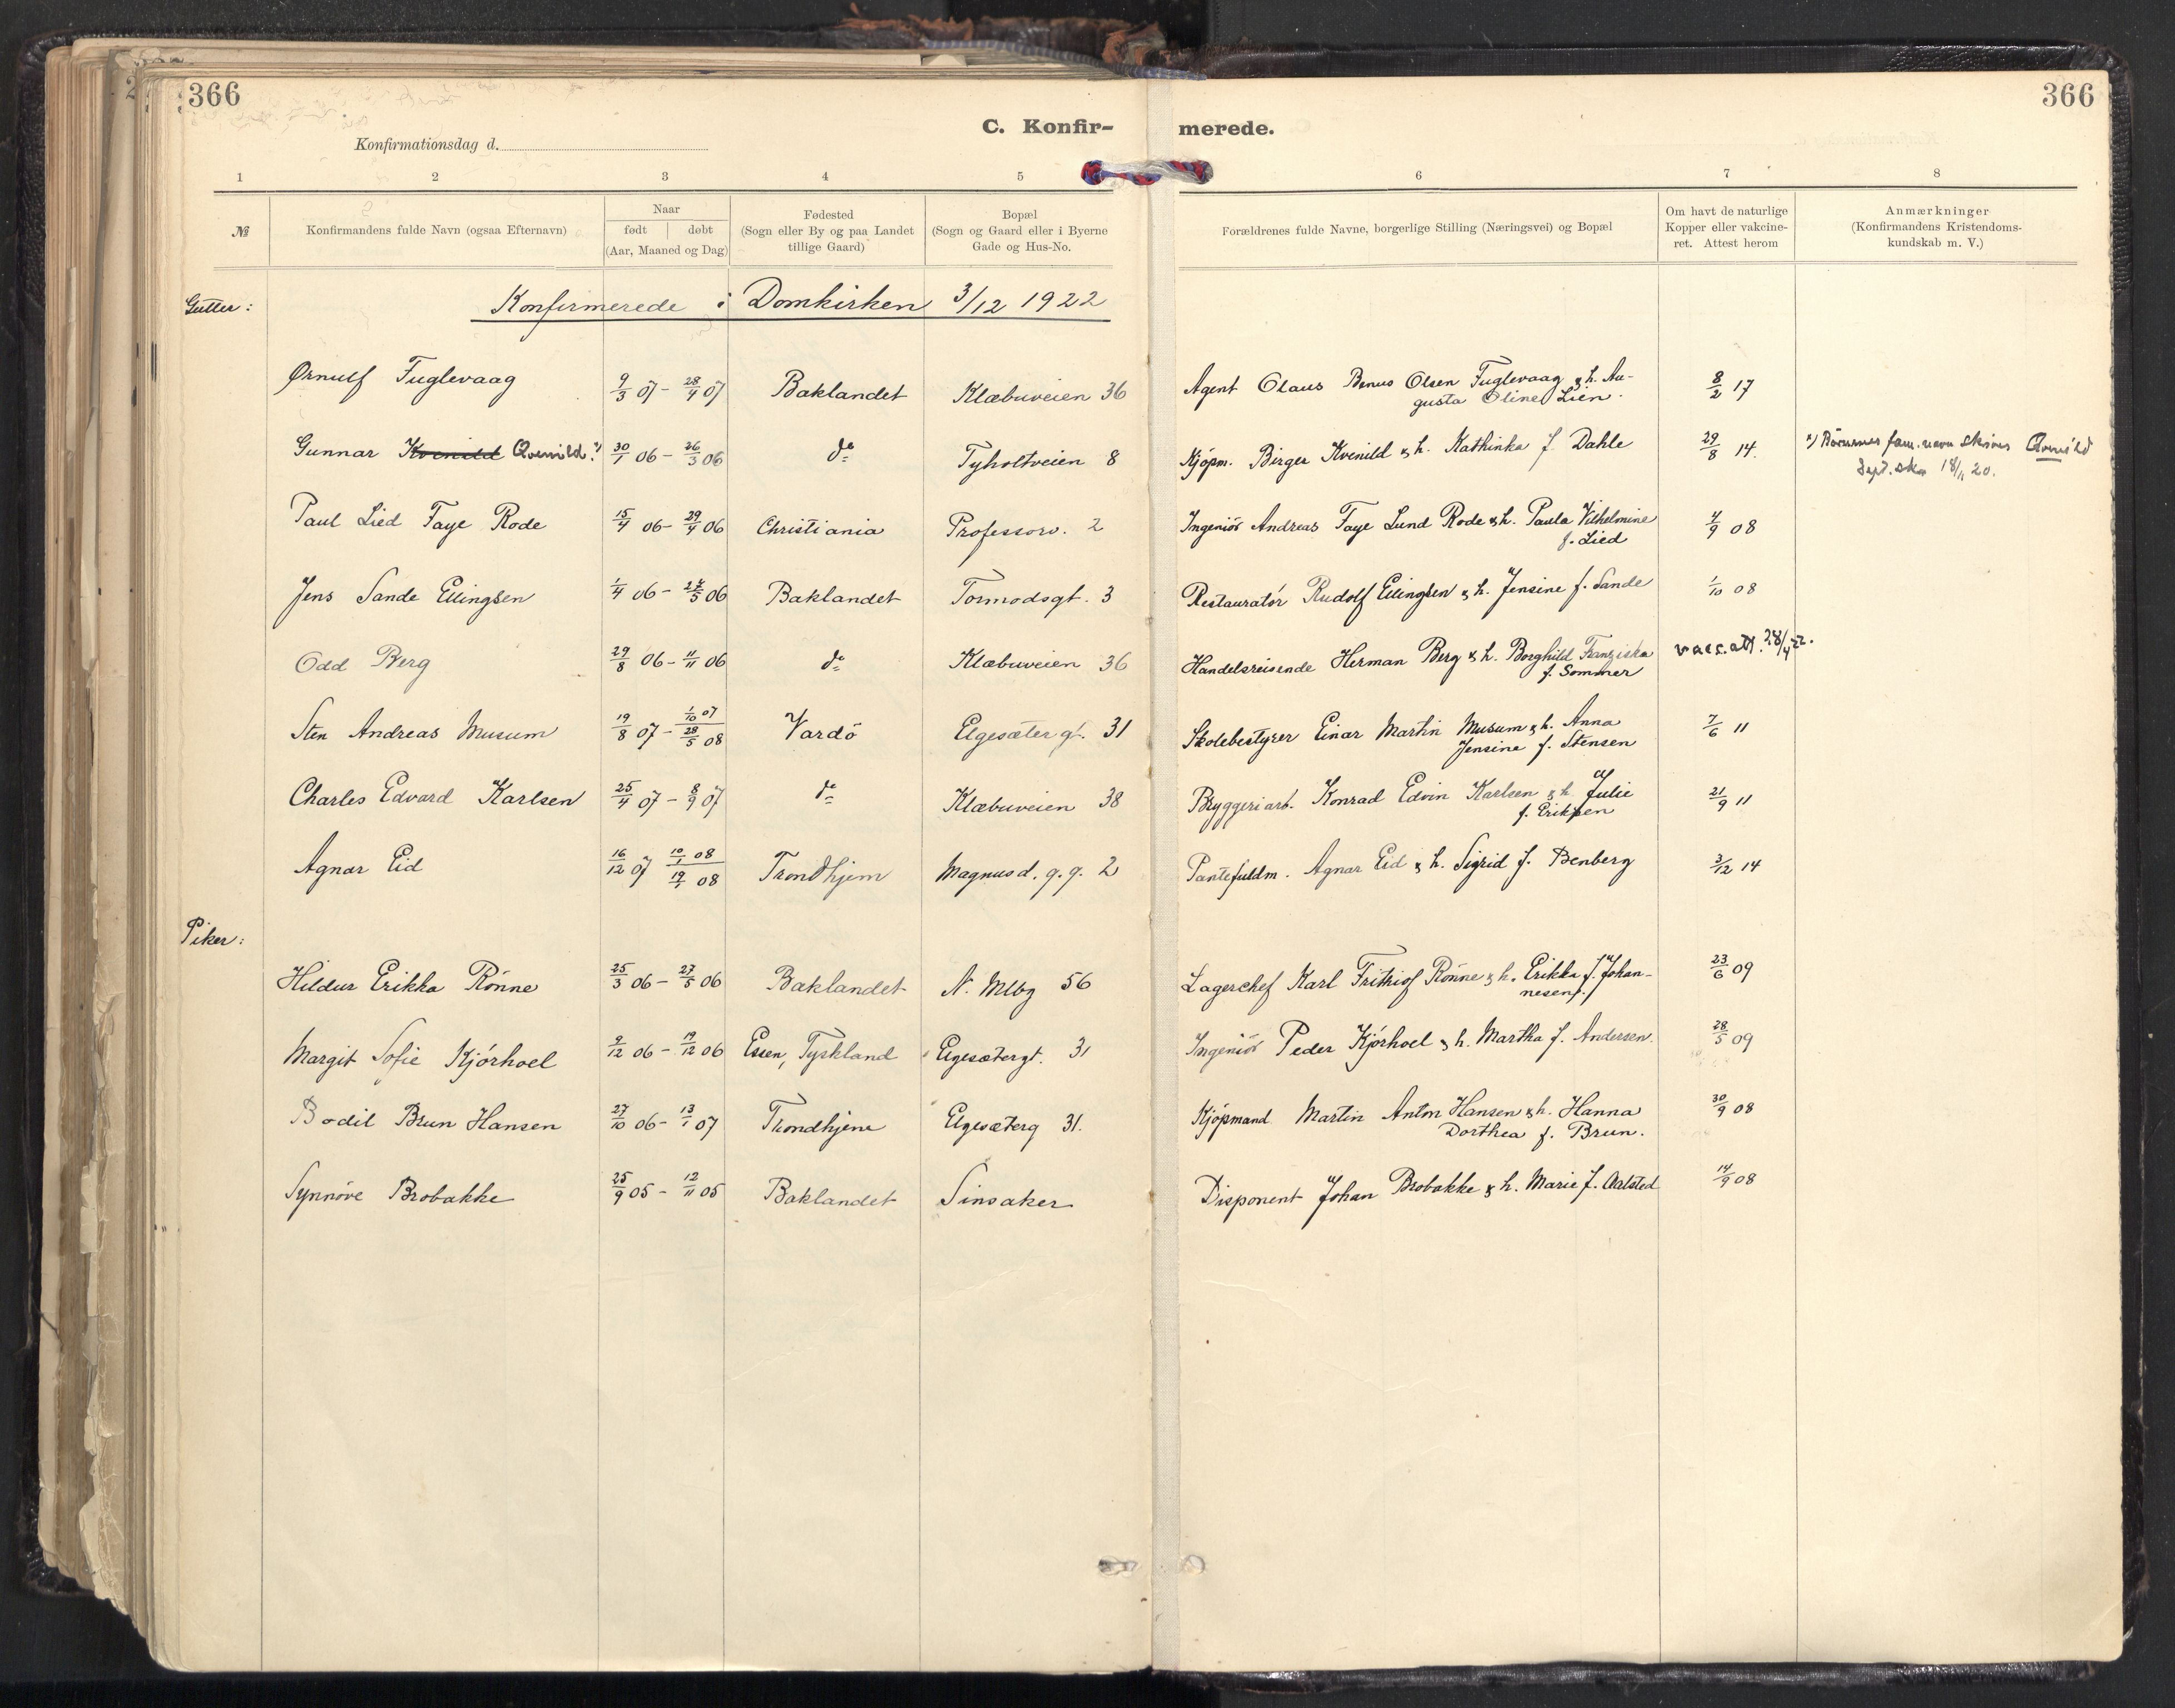 366
366
C. Konfir-
merede.
Konfirmationsdag d.
1 2 3 4 5 6 7 8
№
Konfirmandens fulde Navn (ogsaa Efternavn)
Naar
født døbt
(Aar, Maaned og Dag)
Fødested
(Sogn eller By og paa Landet
tillige Gaard)
Bopæl
(Sogn og Gaard eller i Byerne
Gade og Hus-No.
Forældrenes fulde Navne, borgerlige Stilling (Næringsvei) og Bopæl
Om havt de naturlige
Kopper eller vakcine-
ret. Attest herom
Anmærkninger
(Konfirmandens Kristendoms-
kundskab m. V.)
Gutter: Konfirmerede i Domkirken 3/12 1922
Ørnulf Fuglevaag 9/3 07 - 28/4 07 Baklandet Klæbuveien 36 Agent Olaus Benus Olsen Fuglevaag & h. Au- 8/2 17
gusta Oline Lien.
Gunnar Kvenild Qvenild.x) 30/1 06 - 26/3 06 do Tyholtveien 8 Kjøpm. Birger Kvenild & h. Kathinka f. Dahle 29/8 14. x) Børnenes fam. navn skrives Qvenild
18/11 20.
Paul Lied Faye Rode 15/4 06 - 29/4 06 Christiania Professorv. 2 Ingeniör Andreas Faye Lund Rode & h. Paula Vilhelmine 4/9 08
f. Lied
Jens Sande Ellingsen 1/4 06 - 24/5 06 Baklandet Tormodsgt. 3 Restauratör Rudolf Ellingsen & h. Jensine f. Sande 1/10 08
Odd Berg 29/8 06 - 11/11 06 do Klæbuveien 36 Handelsreisende Herman Berg & h. Borghild Franziska vacc. att. 28/4 22.
f. Sommer
Sten Andreas Musum 19/8 07 - 1/10 07 28/5 08 Vardö Elgesæter gt. 31 Skolebestyrer Einar Martin Musum & h. Anna 7/6 11
Jensine f. Stensen
Charles Edvard Karlsen 25/4 07 - 8/9 07 do Klæbuveien 38 Bryggeriarb. Konrad Edvin Karlsen & h. Julie 21/9 11
f. Eriksen
Agnar Eid 16/12 07 10/1 08 19/1 08 Trondhjem Magnus d. g. g. 2 Pantefuldm. Agnar Eid & h. Sigrid f. Benberg 3/12 14
Piker:
Hildur Erikka Rönne 25/3 06 - 27/5 06 Baklandet N. Mlbg 56 Lagerchef Karl Frithiof Rönne & h. Erikka f. Johan- 23/6 09
nesen
Margit Sofie Kjörhoel 9/12 06 - 19/12 06 Essen, Tyskland Elgesætergt. 31 Ingeniör Peder Kjörhoel & h. Martha f. Andersen. 28/5 09
Bodil Brun Hansen 27/10 06 - 13/1 07 Trondhjem Elgesæterg 31. Kjøpmand Martin Anton Hansen & h. Hanna 30/9 08
Dorthea f. Brun.
Synnöve Brobakke 25/9 05 - 12/11 05 Baklandet Sinsaker Disponent Johan Brobakke & h. Marie f. Aalsted 14/9 08